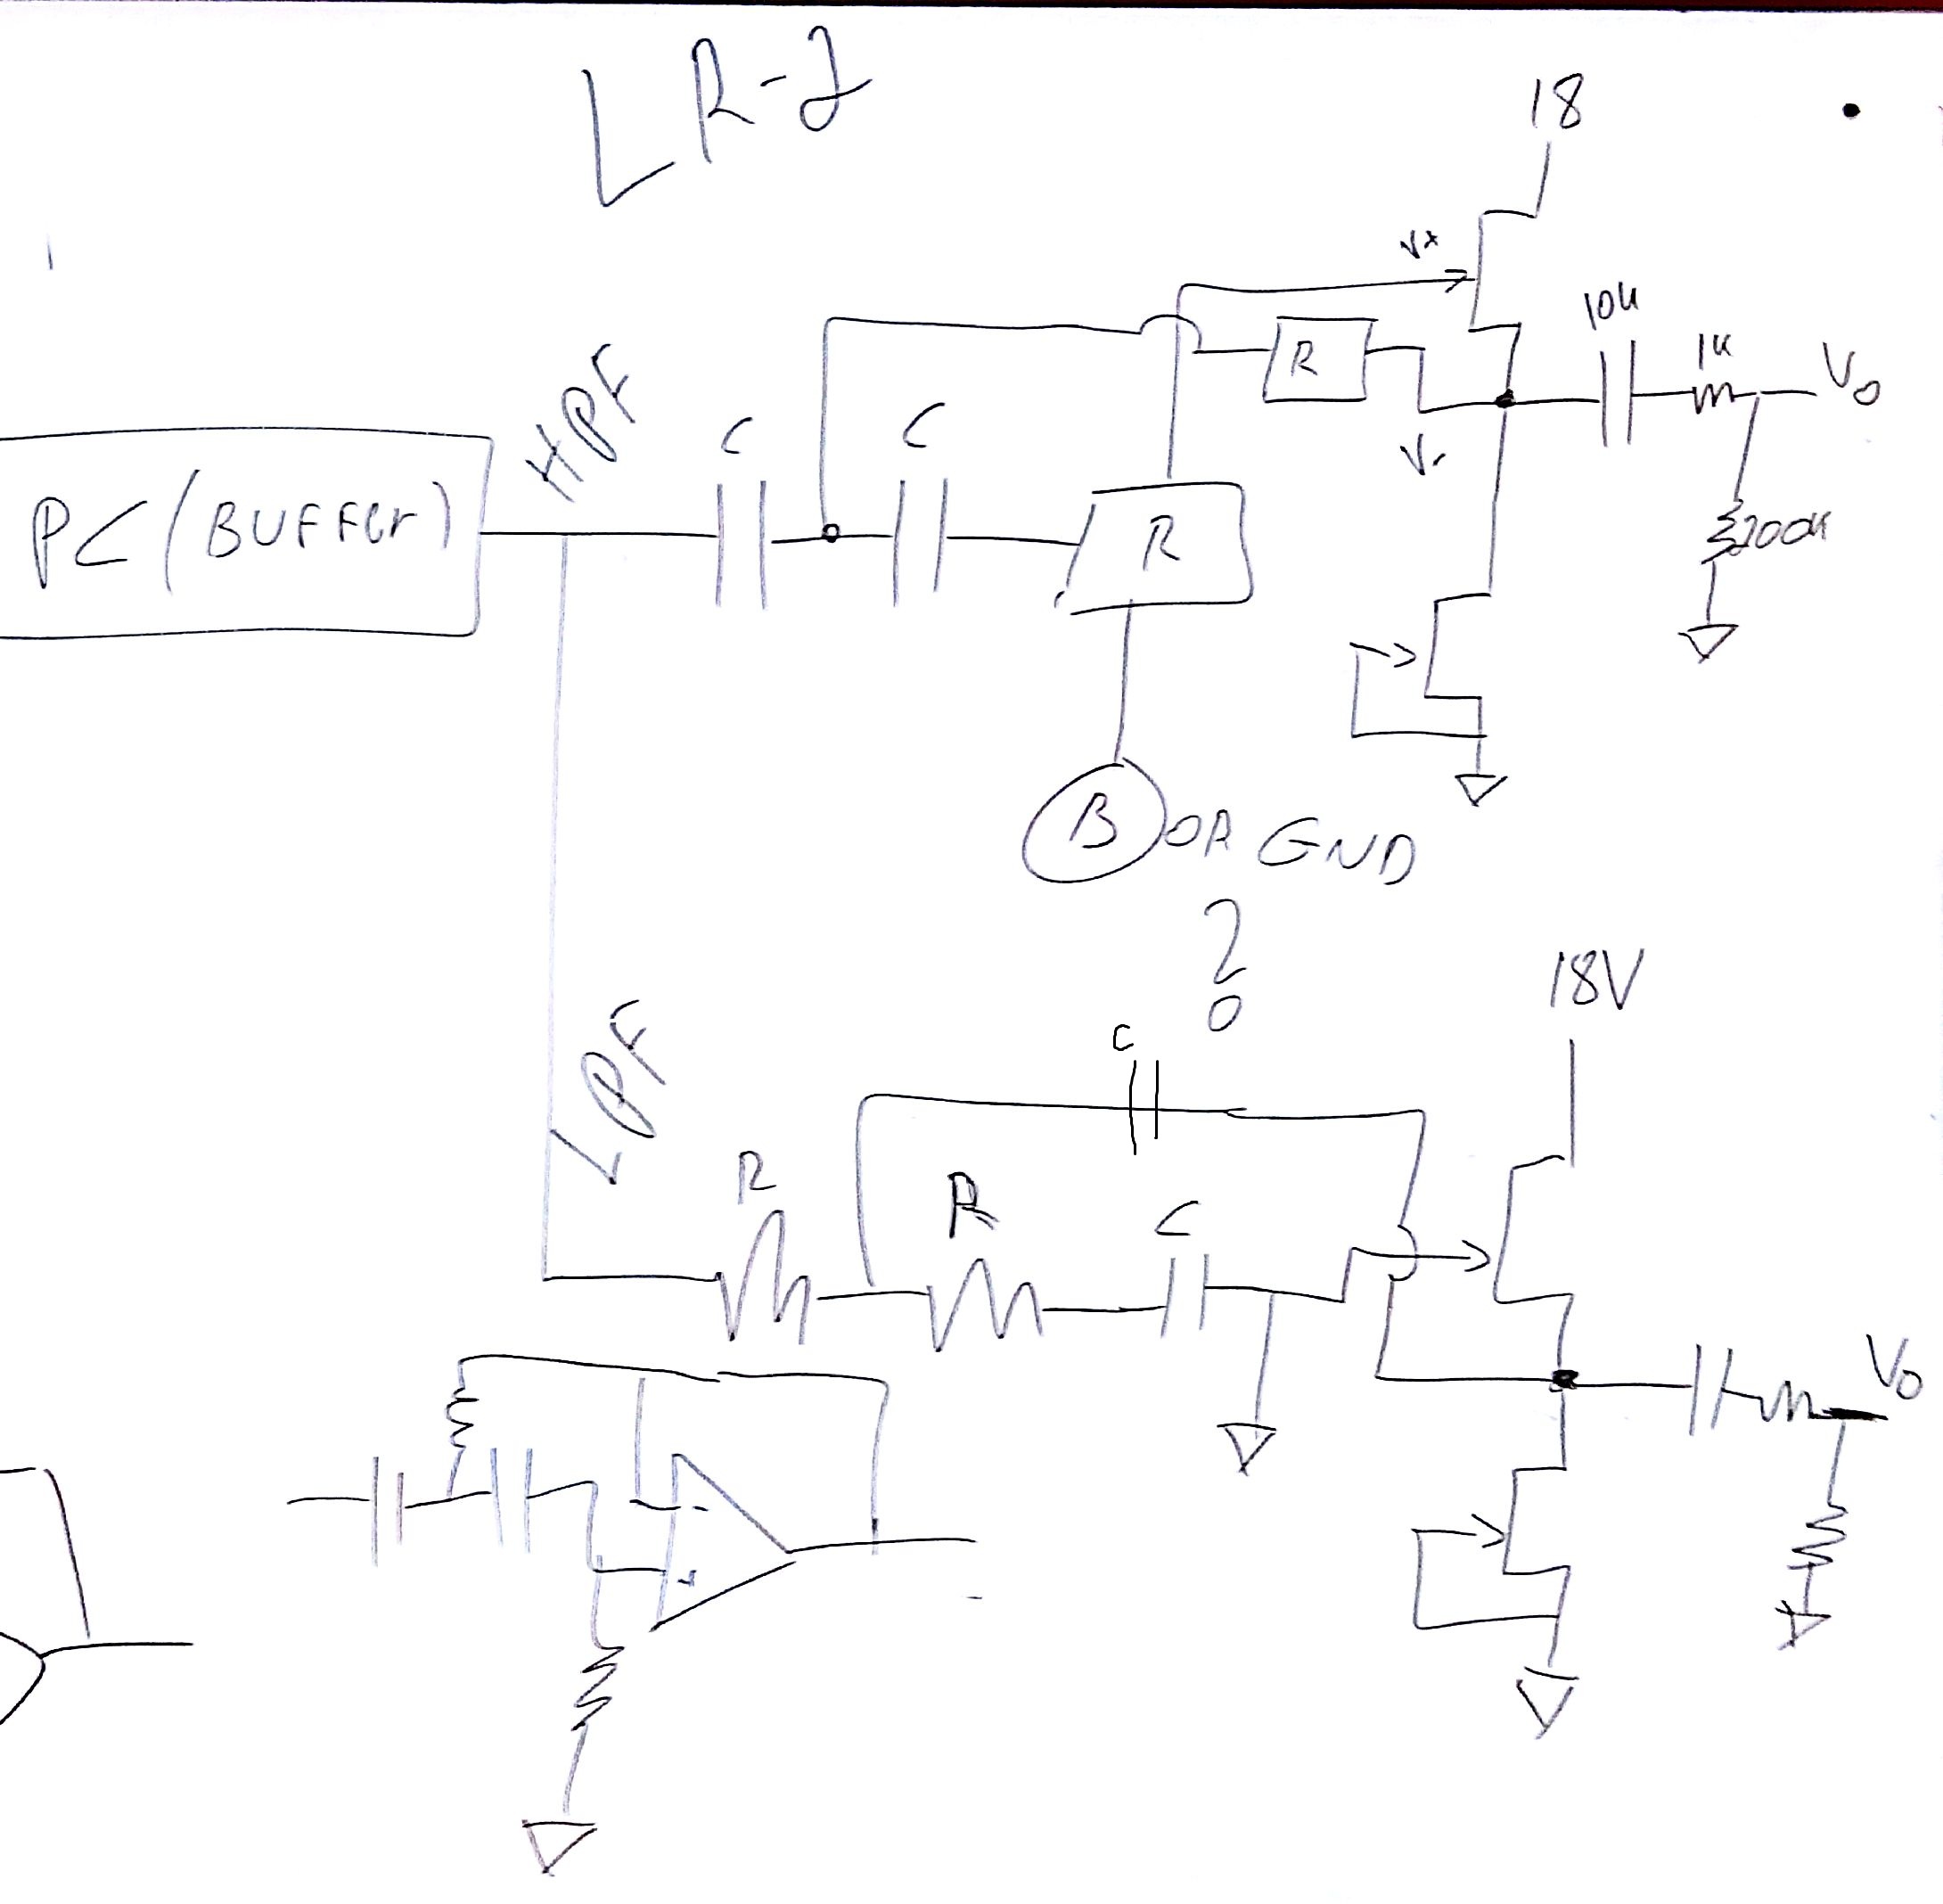 LR-2
18
V+
10u
1K
Vo
R
HPF
C
C
V-
PC (BUFFer)
R
200K
B OR GND
?
18V
C
LPF
R
R
C
Vo
-
+